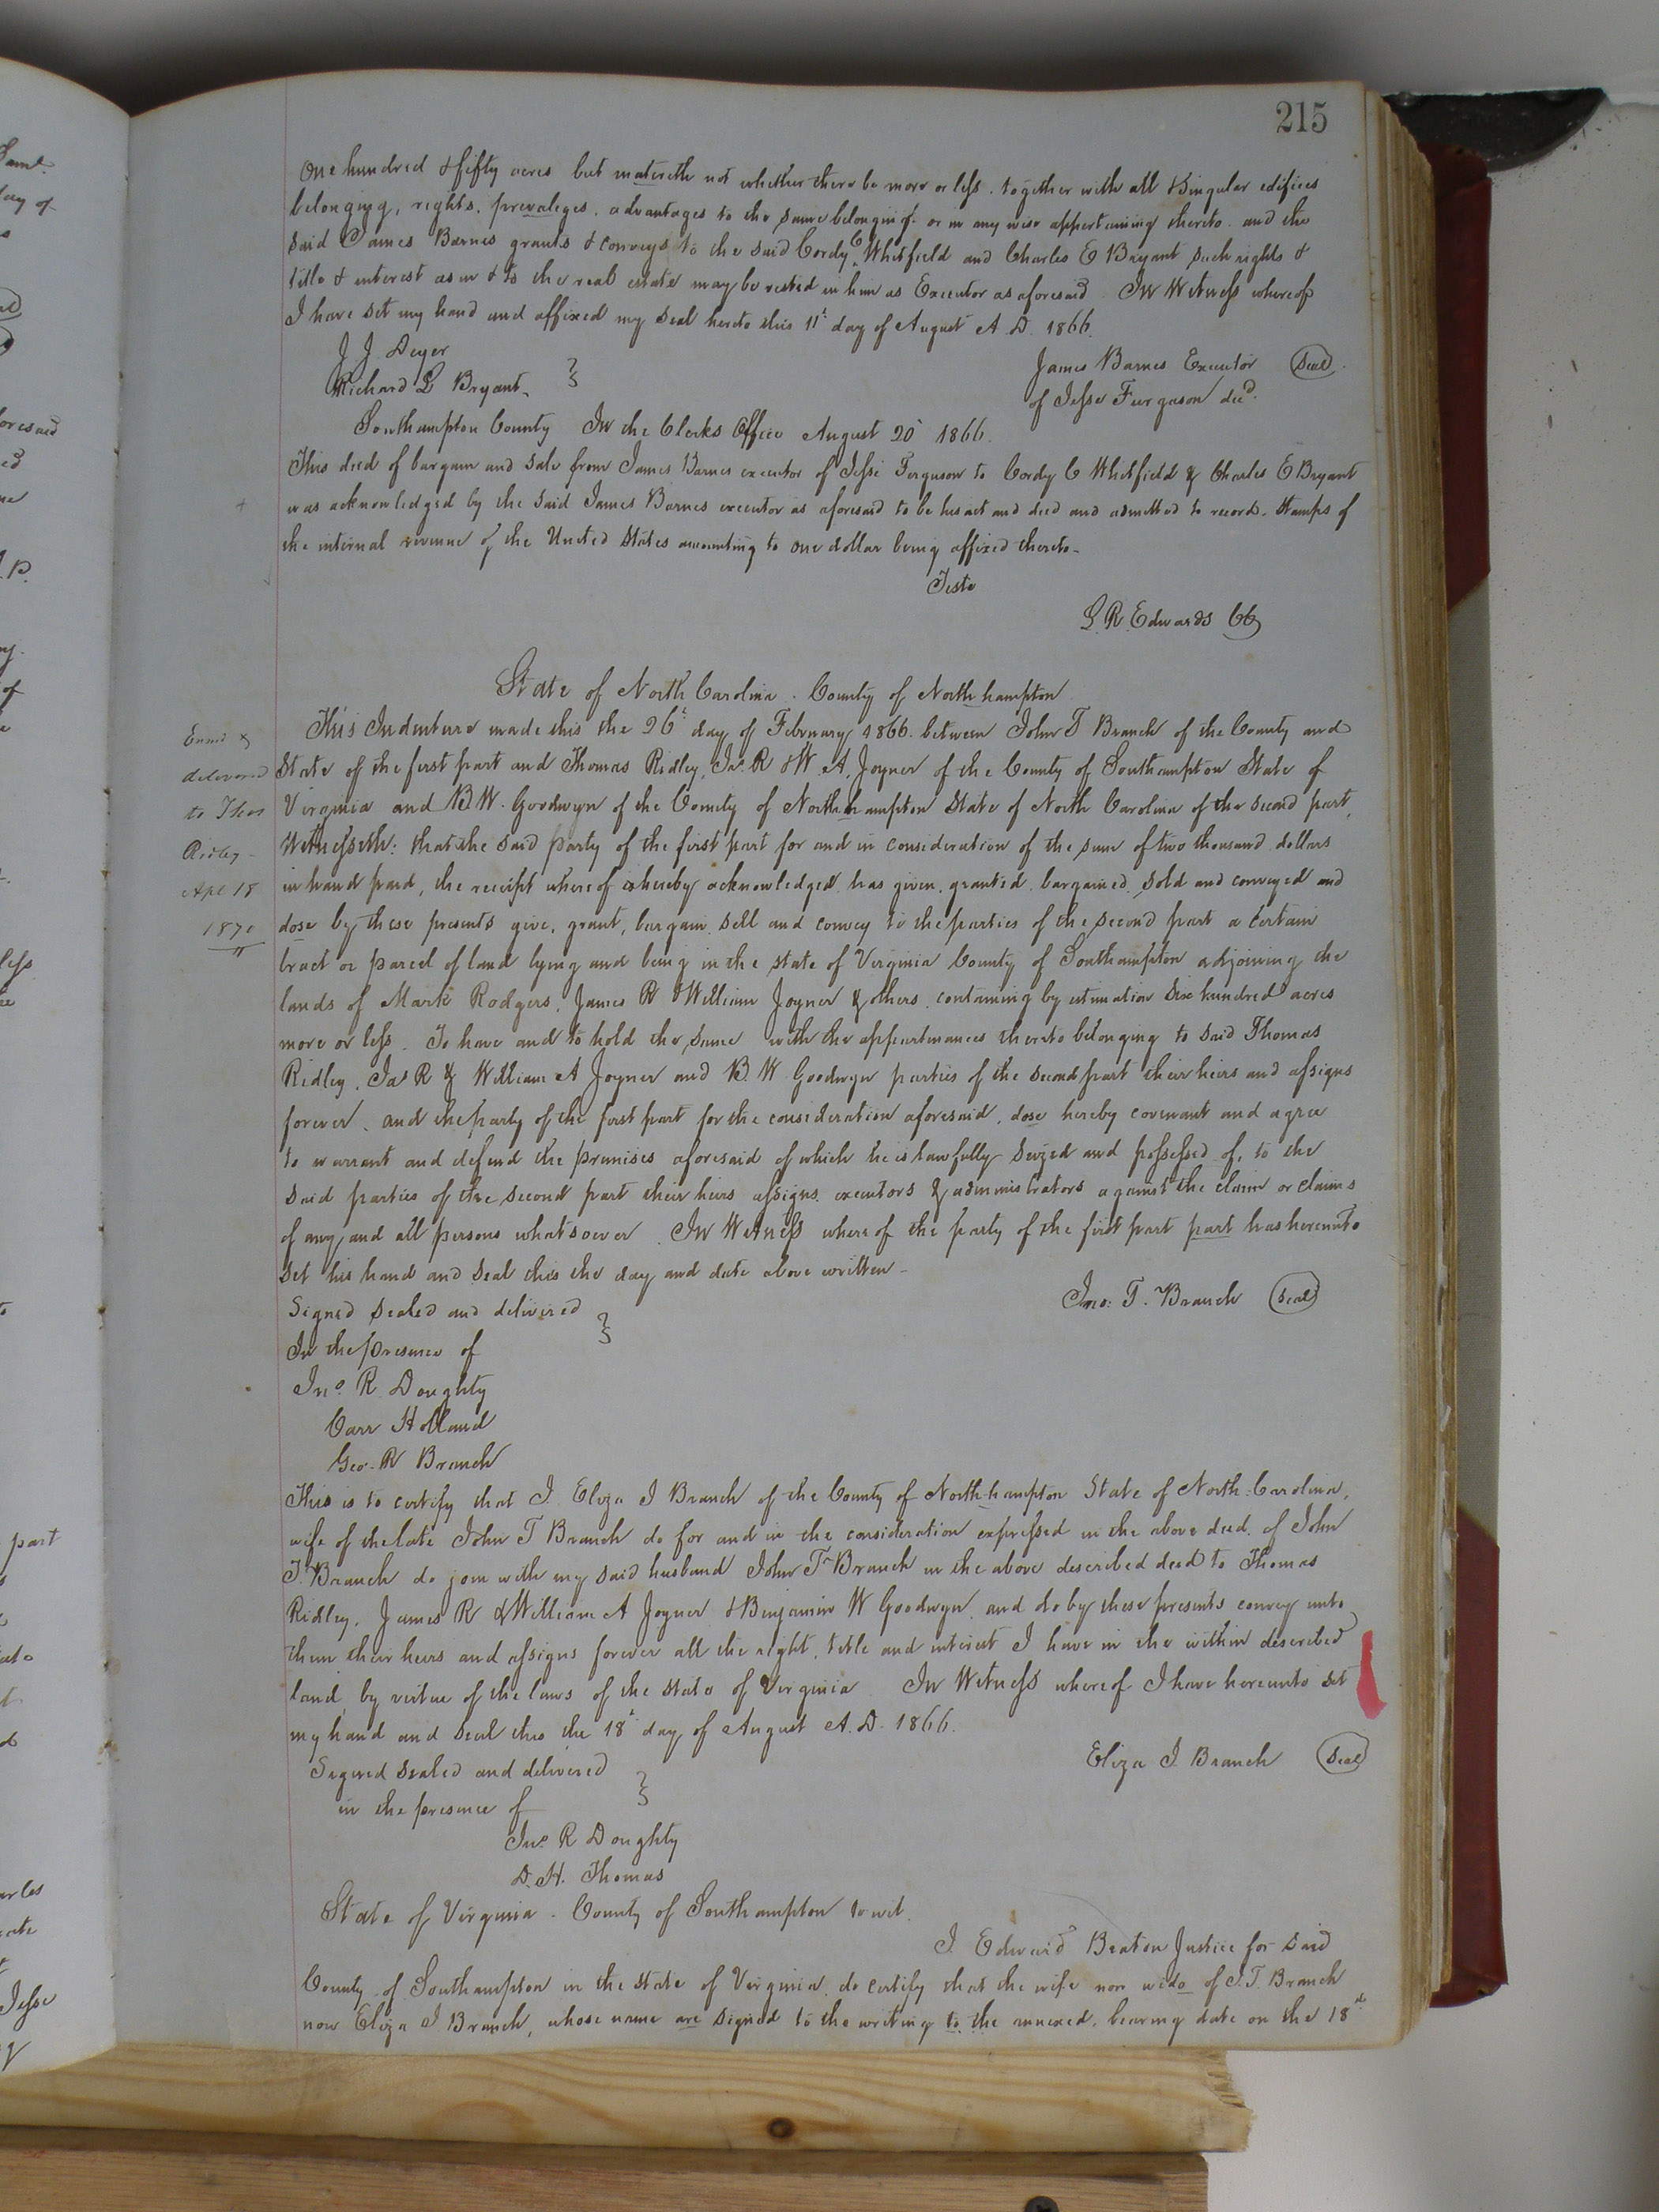 215
One hundred & fifty acres but matereth not whether there be more or less. together with all & Singular edifices
belonging, rights, prevaleges, advantages to the same belonging or in any wise appertaining thereto. and the
said James Barnes grants & conveys to the said Cordy C Whitfield and Charles E Bryant such rights &
title & interest as in & to the real estate may be vested in him as Executor as aforesaid In Witness whereof
I have set my hand and affixed my seal hereto this 11t day of August A.D. 1866.
J J Deyer
Richard L Bryant
James Barnes Executor Seal
of Jesse Furguson decd.
Southampton County In the Clerks Office August 20t 1866.
This deed of bargain and sale from James Barnes executor of Jesse Ferguson to Cordy C Whitfield & Charles E Bryant
was acknowledged by the said James Barnes executor as aforesaid to be his act and deed and admitted to record. Stamps of
the internal revenue of the United States amounting to one dollar being affixed thereto-
Teste
L. R. Edwards CC
State of North Carolina. County of North hampton
This Indenture made this the 26t day of February 1866. between John T Branch of the County and
State of the first part and Thomas Ridley, Jas. R & W. A. Joyner of the County of Southampton State of
Virginia and B. W. Goodwyn of the County of Northhampton State of North Carolina of the second part,
Witnesseth: that the said party of the first part for and in consideration of the sum of two thousand dollars
in hand paid, the receipt whereof is hereby acknowledged, has given, granted, bargained, sold and conveyed and
dose by these presents give, grant, bargain, sell and convey to the parties of the second part a certain
tract or parcel of land lying and being in the state of Virginia County of Southampton adjoining the
lands of Mark Rodgers, James R & William Joyner & others, containing by estimation six hundred acres
more or less. To have and to hold the same with the appurtenances thereto belonging to said Thomas
Ridley, Jas R & William A Joyner and B. W Goodwyn parties of the second part their heirs and assigns
forever. and the party of the first part for the consideration aforesaid, dose hereby covenant and agree
to warrant and defend the premises aforesaid of which he is lawfully seized and possessed of, to the
said parties of the second part their heirs assigns, executors & administrators against the claim or claims
of any and all persons whatsoever. In Witness whereof the party of the first part part has hereunto
set his hand and seal this the day and date above written-
Enmd &
delivered
to Thos
Ridley -
Apl 18
1870
Jno: T. Branch Seal
Signed sealed and delivered
In the presence of
Jno. R. Doughty
Carr Holland
Geo. R Branch
This is to certify that I Eliza J Branch of the County of North-hampton State of North-Carolina,
wife of the late John T Branch do for and in the consideration expressed in the above deed of John
T. Branch do join with my said husband John T Branch in the above described deed to Thomas
Ridley, James R & William A Joyner & Binjamin W Goodwyn, and do by these presents convey unto
them their heirs and assigns forever all the right, title and interest I have in the within described
land, by virtue of the laws of the state of Virginia In Witness whereof I have hereunto set
my hand and seal this the 18t day of August A.D. 1866.
Eliza J Branch Seal
Signed sealed and delivered
in the presence of
Jno. R Doughty
D. H. Thomas
State of Virginia. County of Southampton to wit.
I. Edward Beaton Justice for said
County of Southampton in the state of Virginia, do certify that the wife now wido of J. T. Branch
now Eliza J Branch, whose name are signed to the writing to the annexed, bearing date on the 18t